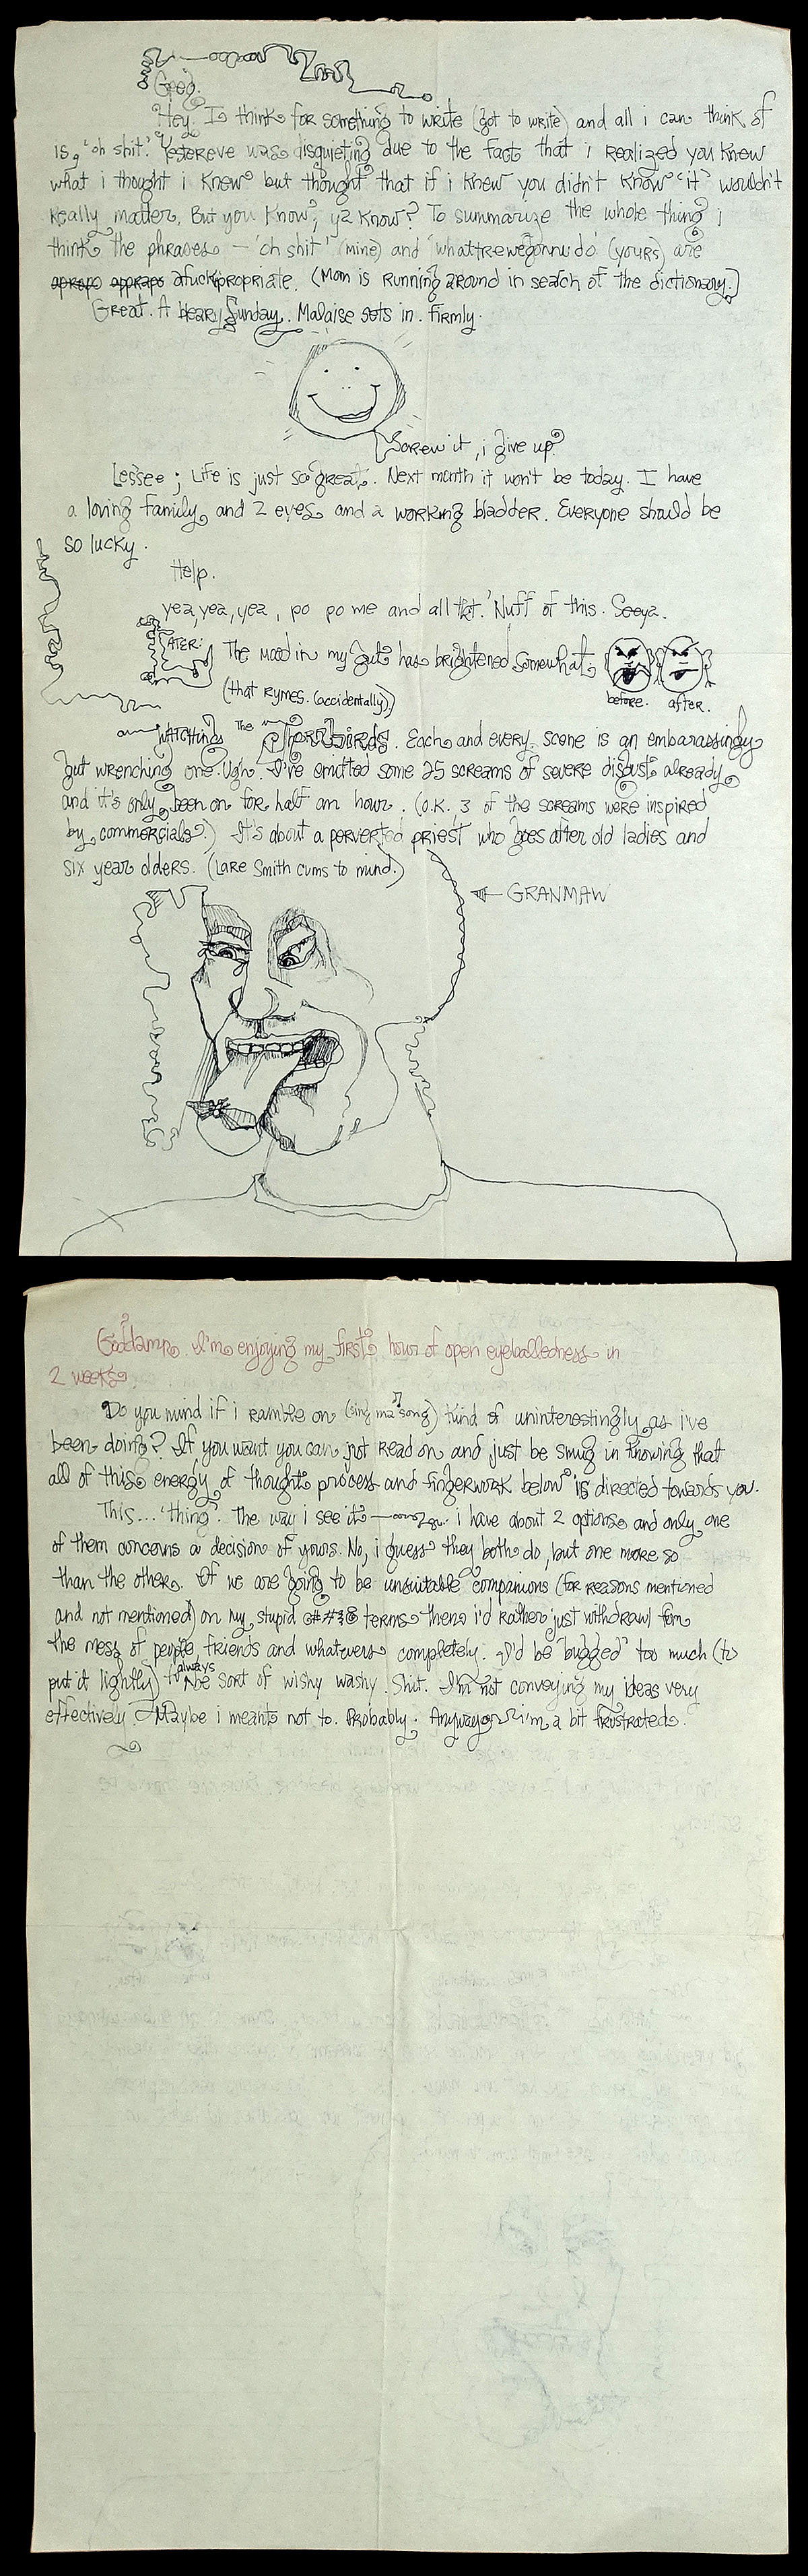 Greg.
Hey. I think for something to write (got to write) and all i can think of
is, 'oh shit.' Yestereve was disquieting due to the fact that i realized you knew
what i thought i knew but thought that if i knew you didn't know 'it' wouldn't
really matter. But you know, ya know? To summarize the whole thing i
think the phrases — 'oh shit' (mine) and 'whattrewegonnado' (yours) are
apropo appropo afuckpropriate. (Mom is running around in search of the dictionary.)
Great. A bleary Sunday. Malaise sets in. Firmly.
Screw it, i give up.
Lessee; Life is just so great. Next month it won't be today. I have
a loving family and 2 eyes and a working bladder. Everyone should be
so lucky.
Help.
yea, yea, yea, po po me and all that. 'Nuff of this. Seeya.
LATER: The mood in my gut has brightened somewhat.
before. after.
(that rymes. (accidentally))
WATCHING The Thornbirds. Each and every scene is an embarassingly
gut wrenching one. Ugh. I've emitted some 25 screams of severe disgust already
and it's only been on for half an hour. (O.K. 3 of the screams were inspired
by commercials.) It's about a perverted priest who goes after old ladies and
six year olders. (Lare Smith cums to mind.)
GRANMAW
Goddamn. I'm enjoying my first hour of open eyeballedness in
2 weeks.
Do you mind if i ramble on (sing ma song) kind of uninterestingly as i've
been doing? If you want you can not read on and just be smug in knowing that
all of this energy of thought process and fingerwork below is directed towards you.
This... 'thing'. The way i see it — i have about 2 options and only one
of them concerns a decision of yours. No, i guess they both do, but one more so
than the other. If we are going to be unsuitable companions (for reasons mentioned
and not mentioned) on my stupid @#*&@ terms then i'd rather just withdrawl fom
the mess of people, friends and whatevers completely. I'd be 'bugged' too much (to
put it lightly) to always be sort of wishy washy. Shit. I'm not conveying my ideas very
effectively. Maybe i meant not to. Probably. Anyway i'm a bit frustrated.